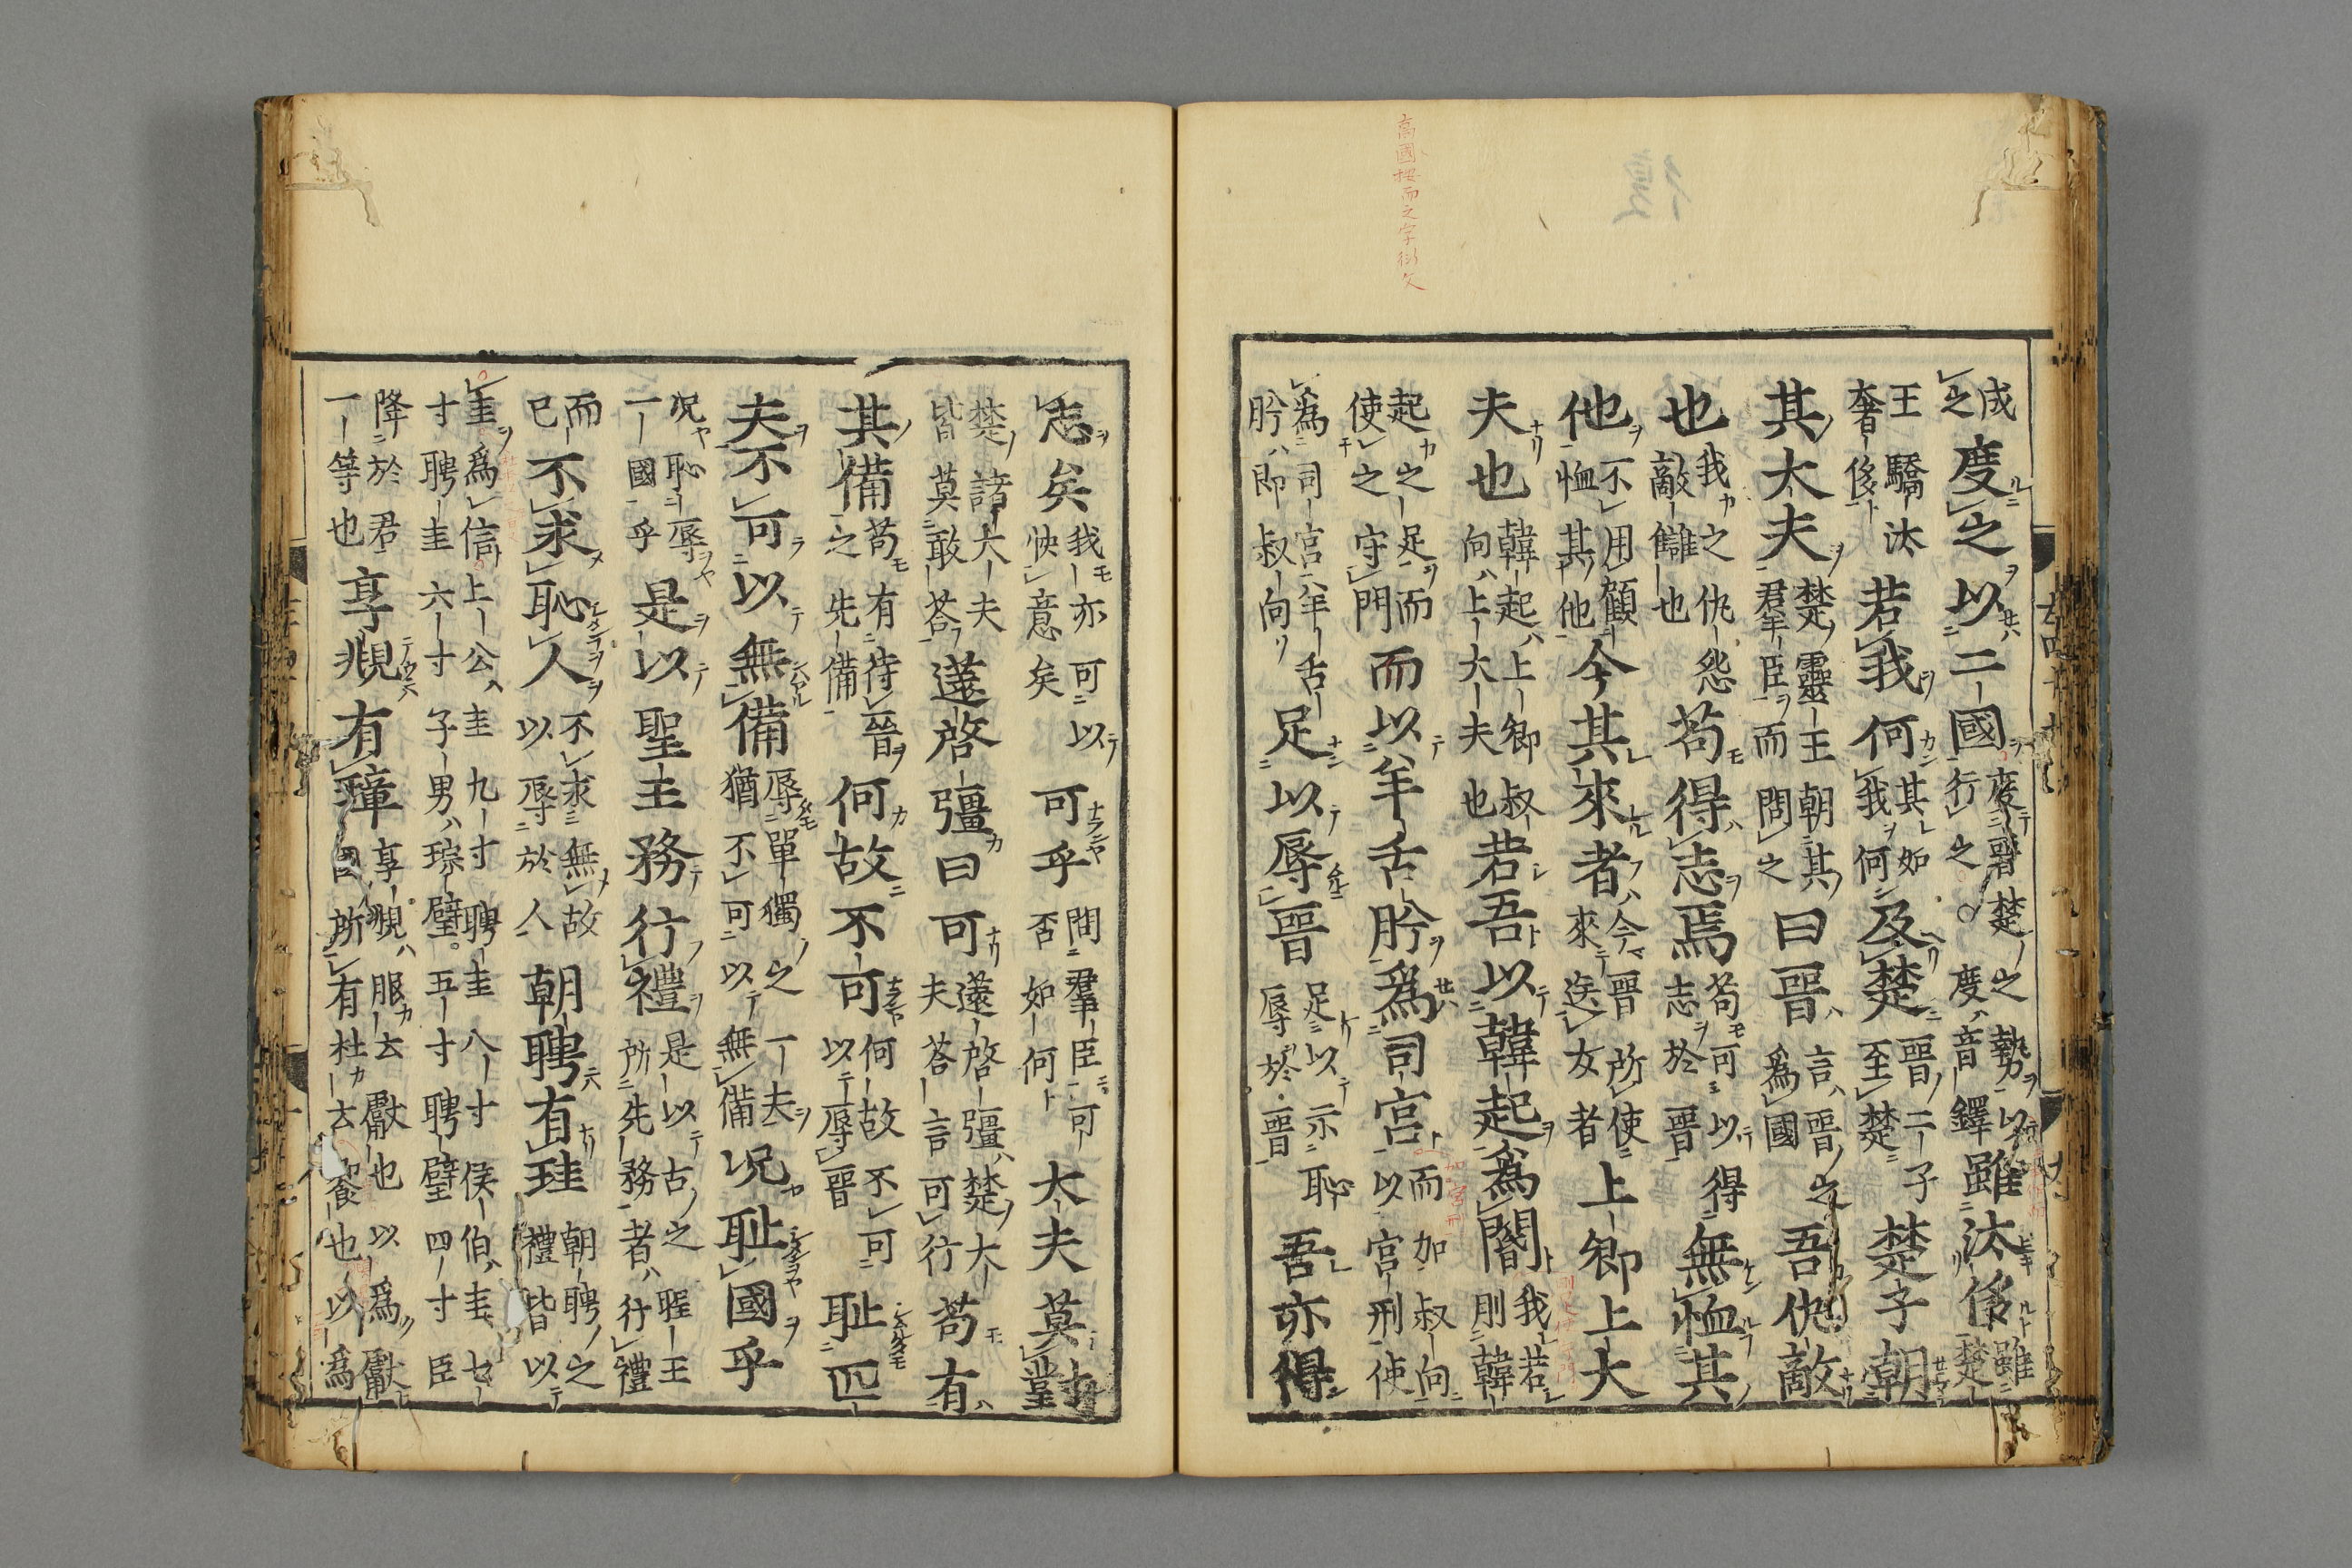 成之度之以二國度晉楚之勢以行之度音鐸雖汰侈雖楚
王驕汰奢侈若我何其如我何及楚晉二子至楚楚子朝
其大夫楚靈王朝其羣臣而問之曰晉言晉之為國吾仇敵
也我之仇怨敵讎也苟得志焉苟可以得志於晉無恤其
他不用顧恤其他今其來者今晉所使來送女者上卿上大
夫也韓起上卿叔向上大夫也若吾以韓起爲閽我若刖韓
起之足而使之守門而以羊舌肸爲司宮而加叔向以宮刑使
爲司宮羊舌肸即叔向足以辱晉足以示恥辱於晉吾亦得
志矣我亦可以快意矣可乎問羣臣可否如何大夫莫對
楚諸大夫皆莫敢荅薳啓彊曰可薳啓彊楚大夫荅言可行苟有
其備苟有待晉之先備何故不可何故不可以辱晉耻匹
夫不可以無備辱單獨之一夫猶不可以無備况耻國乎
况恥辱一國乎是以聖王務行禮是以古之聖王所先務者行禮
而已不求恥人不求無故以辱於人朝聘有珪朝聘之禮皆以
圭爲信上公圭九寸聘圭八寸侯伯圭七寸聘圭六寸子男琮璧五寸聘璧四寸臣
降於君一等也享覜有璋享覜服云獻也以爲獻所有杜云饗也以爲